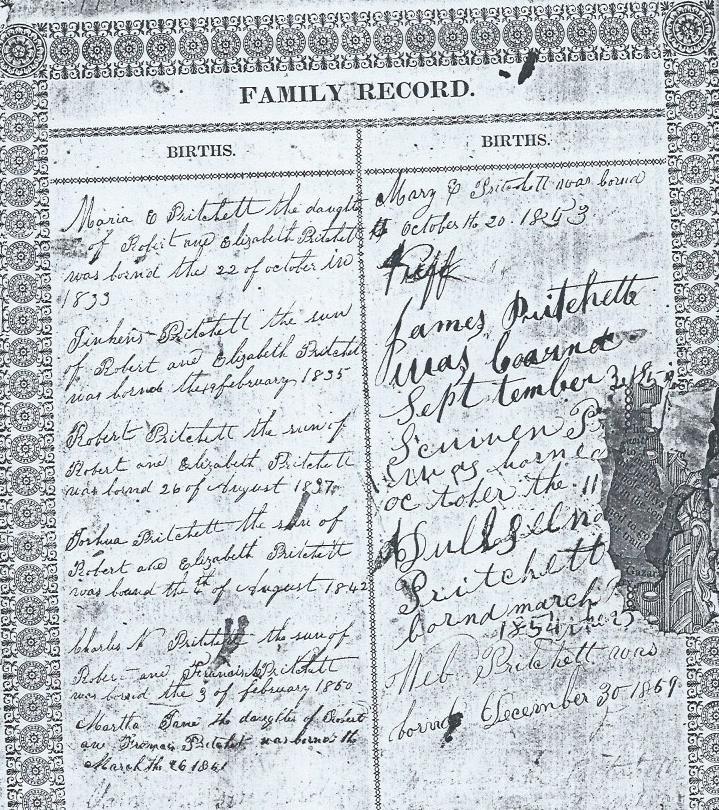 FAMILY RECORD.
BIRTHS.
Maria E Pritchett the daught
of Robert and Elizabeth Pritchett
was bornd the 22 of october in
1833
Pritchett the sun
of Robert and Elizabeth Pritchet
was bornd the february 1835
Robert Pritchett the sun of
Robert and Elizabeth Pritchett
was bornd 26 of August 1837
Joshua Pritchett the sun of
Robert and Elizabeth Pritchett
was bound the 4th of August 1842
Charles N Pritchett the sun of
Robert and Francis Pritchett
was bornd the 3 of february 1860
Martha Jane the daughter of Robert
and Pritchet was bornd th
March the 26 1861
BIRTHS.
Mary E Pritchett was bornd
October the 20
James Pritchett
was bournd
Sept tember
Scriven P
was borne
oc tober the 11
Pritchett
bornd march
1854
Web Pritchett was
bornd December 30 1859